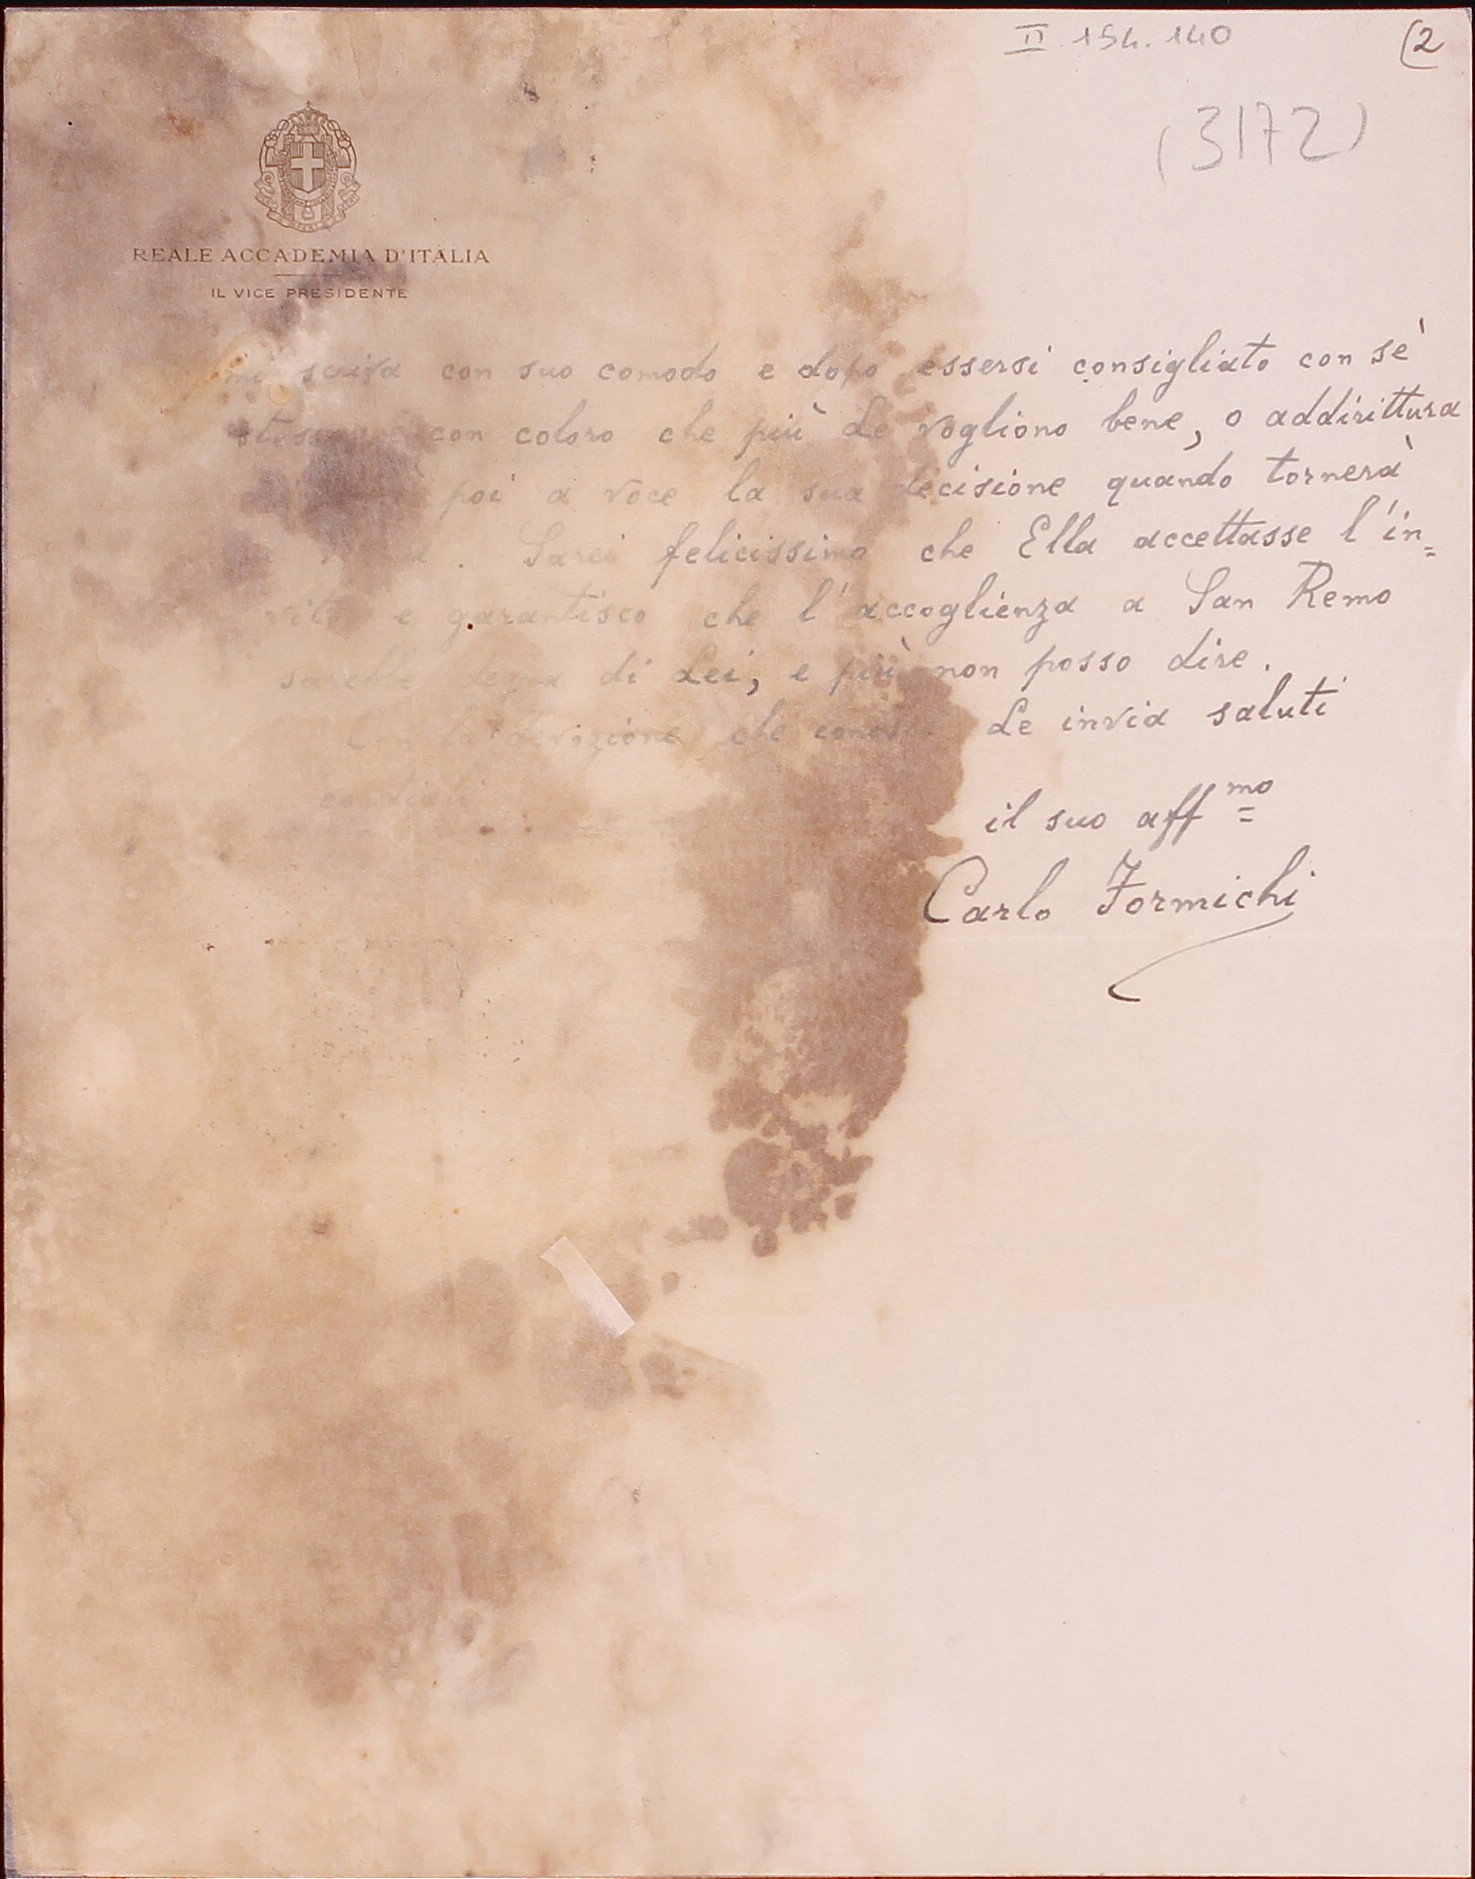 II. 154. 140
(2
(3172)
REALE ACCADEMIA D'ITALIA
IL VICE PRESIDENTE
mi scriva con suo comodo e dopo essersi consigliato con sè
con coloro che più Le vogliono bene, o addirittura
poi a voce la sua decisione quando tornerà
. Sarei felicissimo che Ella accettasse l'in=
vito e garantisco che l'accoglienza a San Remo
sarebbe degna di Lei, e più non posso dire.
devozione che Le invia saluti
cordiali
il suo aff mo
Carlo Formichi